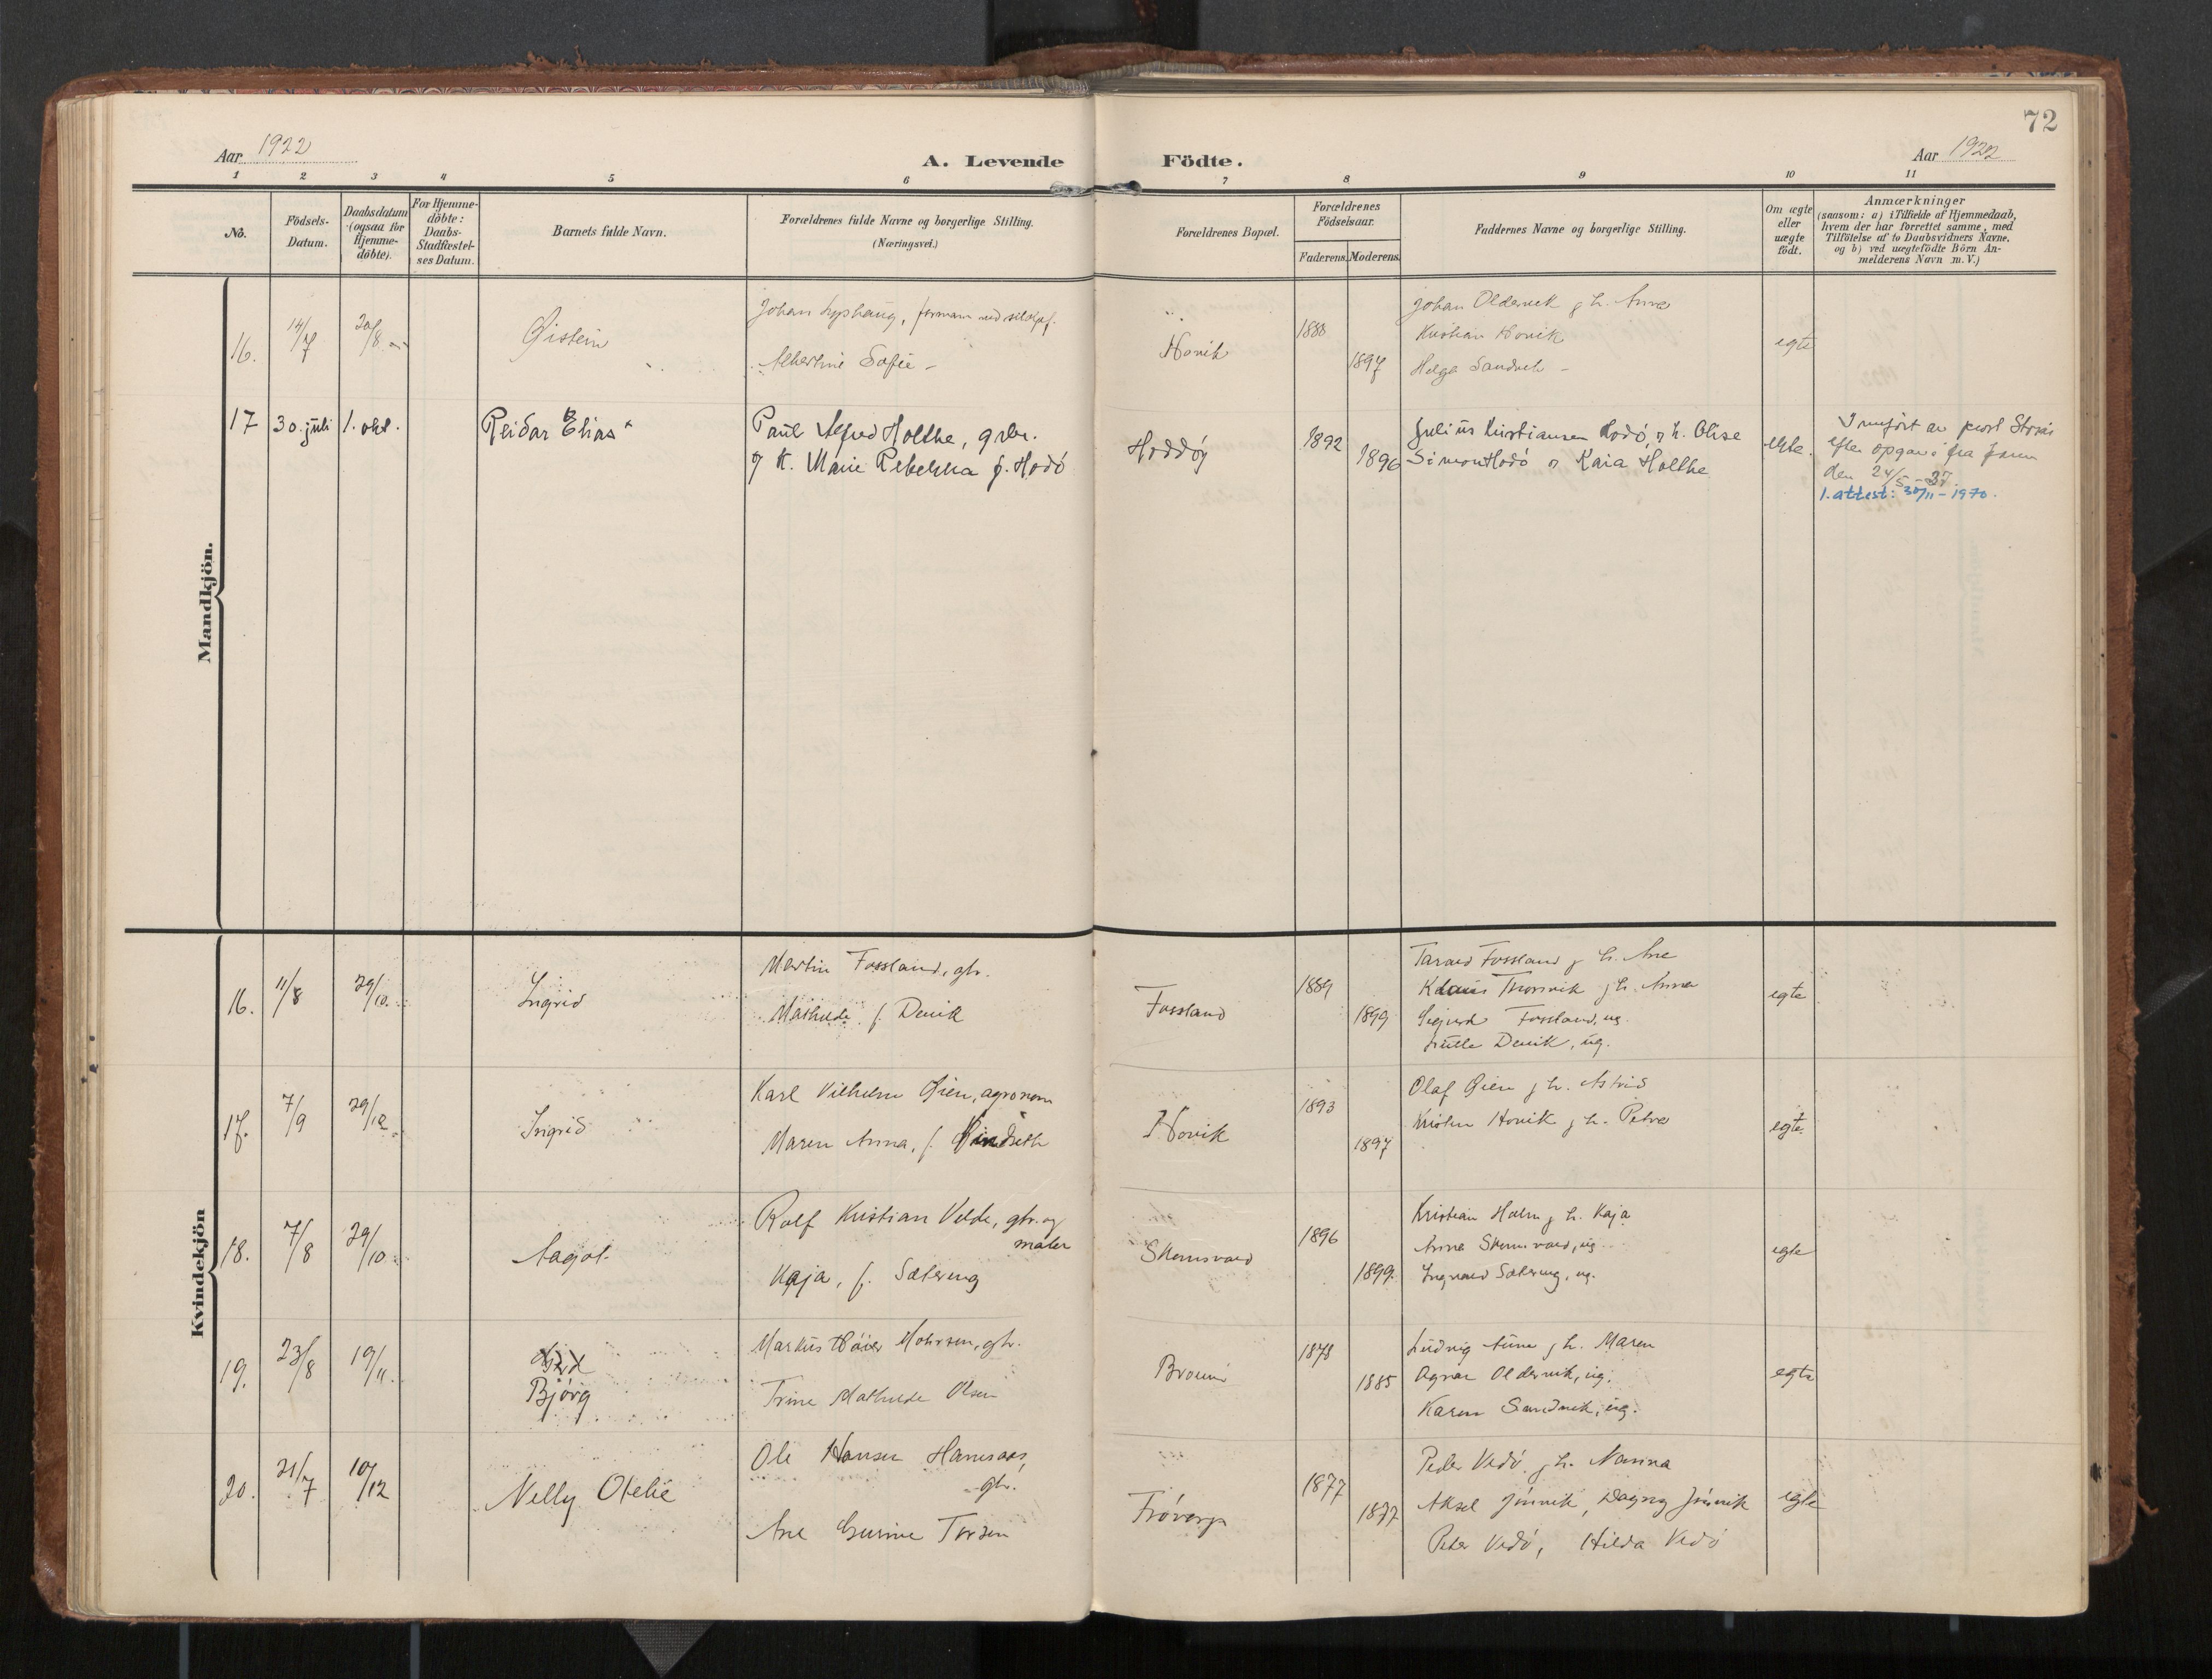 72
Aar 1922
A. Levende Födte.
Aar 1922
1 2 3 4 5 6 7 8 9 10 11
No.
Födsels-
Datum.
Daabsdatum
(ogsaa for
Hjemme-
döbte).
For Hjemme-
döbte:
Daabs-
Stadfæstel-
ses Datum.
Barnets fulde Navn.
Forældrenes fulde Navne og borgerlige Stilling.
(Næringsvei.)
Forældrenes Bopæl.
Forældrenes
Födselsaar.
Faderens. Moderens.
Faddernes Navne og borgerlige Stilling.
Om ægte
eller
uægte
födt.
Anmærkninger
(saasom: a) i Tilfælde af Hjemmedaab,
hvem der har forrettet samme, med
Tilföielse af to Daabsvidners Navne,
og b) ved uægtefödte Börn An-
melderens Navn m. V.)
Mandkjön.
16. 14/7 20/8
Øistein
Johan Lyshaug, formann ved
Albertine Sofie
Hovik
1888
1897
Johan Oldervik & h. Anna
Kristian Hovik
Helga Sandvik
egte
17 30. juli 1. okt.
Reidar Elias
Paul Alfred Holthe, gbr.
og K. Marie Rebekka f. Hodó
Hoddöy
1892
1896
Julius Kristiansen Hodó, og h. Olise
Simon Hodó og Kaia Holthe
egte.
Innført av prost Storås
efter opgave fra faren
den 24/5-37.
1. attest: 30/11-1970.
Kvindekjön
16. 11/8 29/10.
Ingrid
Martin Fossland, gbr.
Mathilde f. Devik
Fossland
1889
1899
Tarald Fossland & h. Ane
Klaus Thorsvik & h. Anna
Sigurd Fossland, ug.
Devik, ug.
egte
17. 7/9 29/12
Ingrid
Karl Vilhelm Øien, agronom
Maren Anna, f.
Hovik
1893
1897
Olaf Øien & h. Astrid
Kristen Hovik & h. Petra
egte.
18. 7/8 29/10
Aagot.
Rolf Kristian Velde, gbr. og
maler
Kaja, f. Sætering
Skomsvold
1896
1899.
Kristian Holm & h. Kaja
Anna Skomsvold, ug
Ingvald Sætering, ug.
egte
19. 23/8 19/11.
Bjórg
Markus Höier Mohrsen, gbr.
Trine Mathilde Olsen
1878
1885
Ludvig Aune & h. Maren
Agnar Oldervik, ug.
Karen Sandvik, ug.
egte
20. 21/7 10/12
Nelly Otelie
Ole Hansen
gbr.
Ane Gurine Torsen
1877
1877
Peder Vedó & h. Nanna
Aksel Jónvik, Dagny Jónvik
Peter Vedó, Hilda Vedó
egte